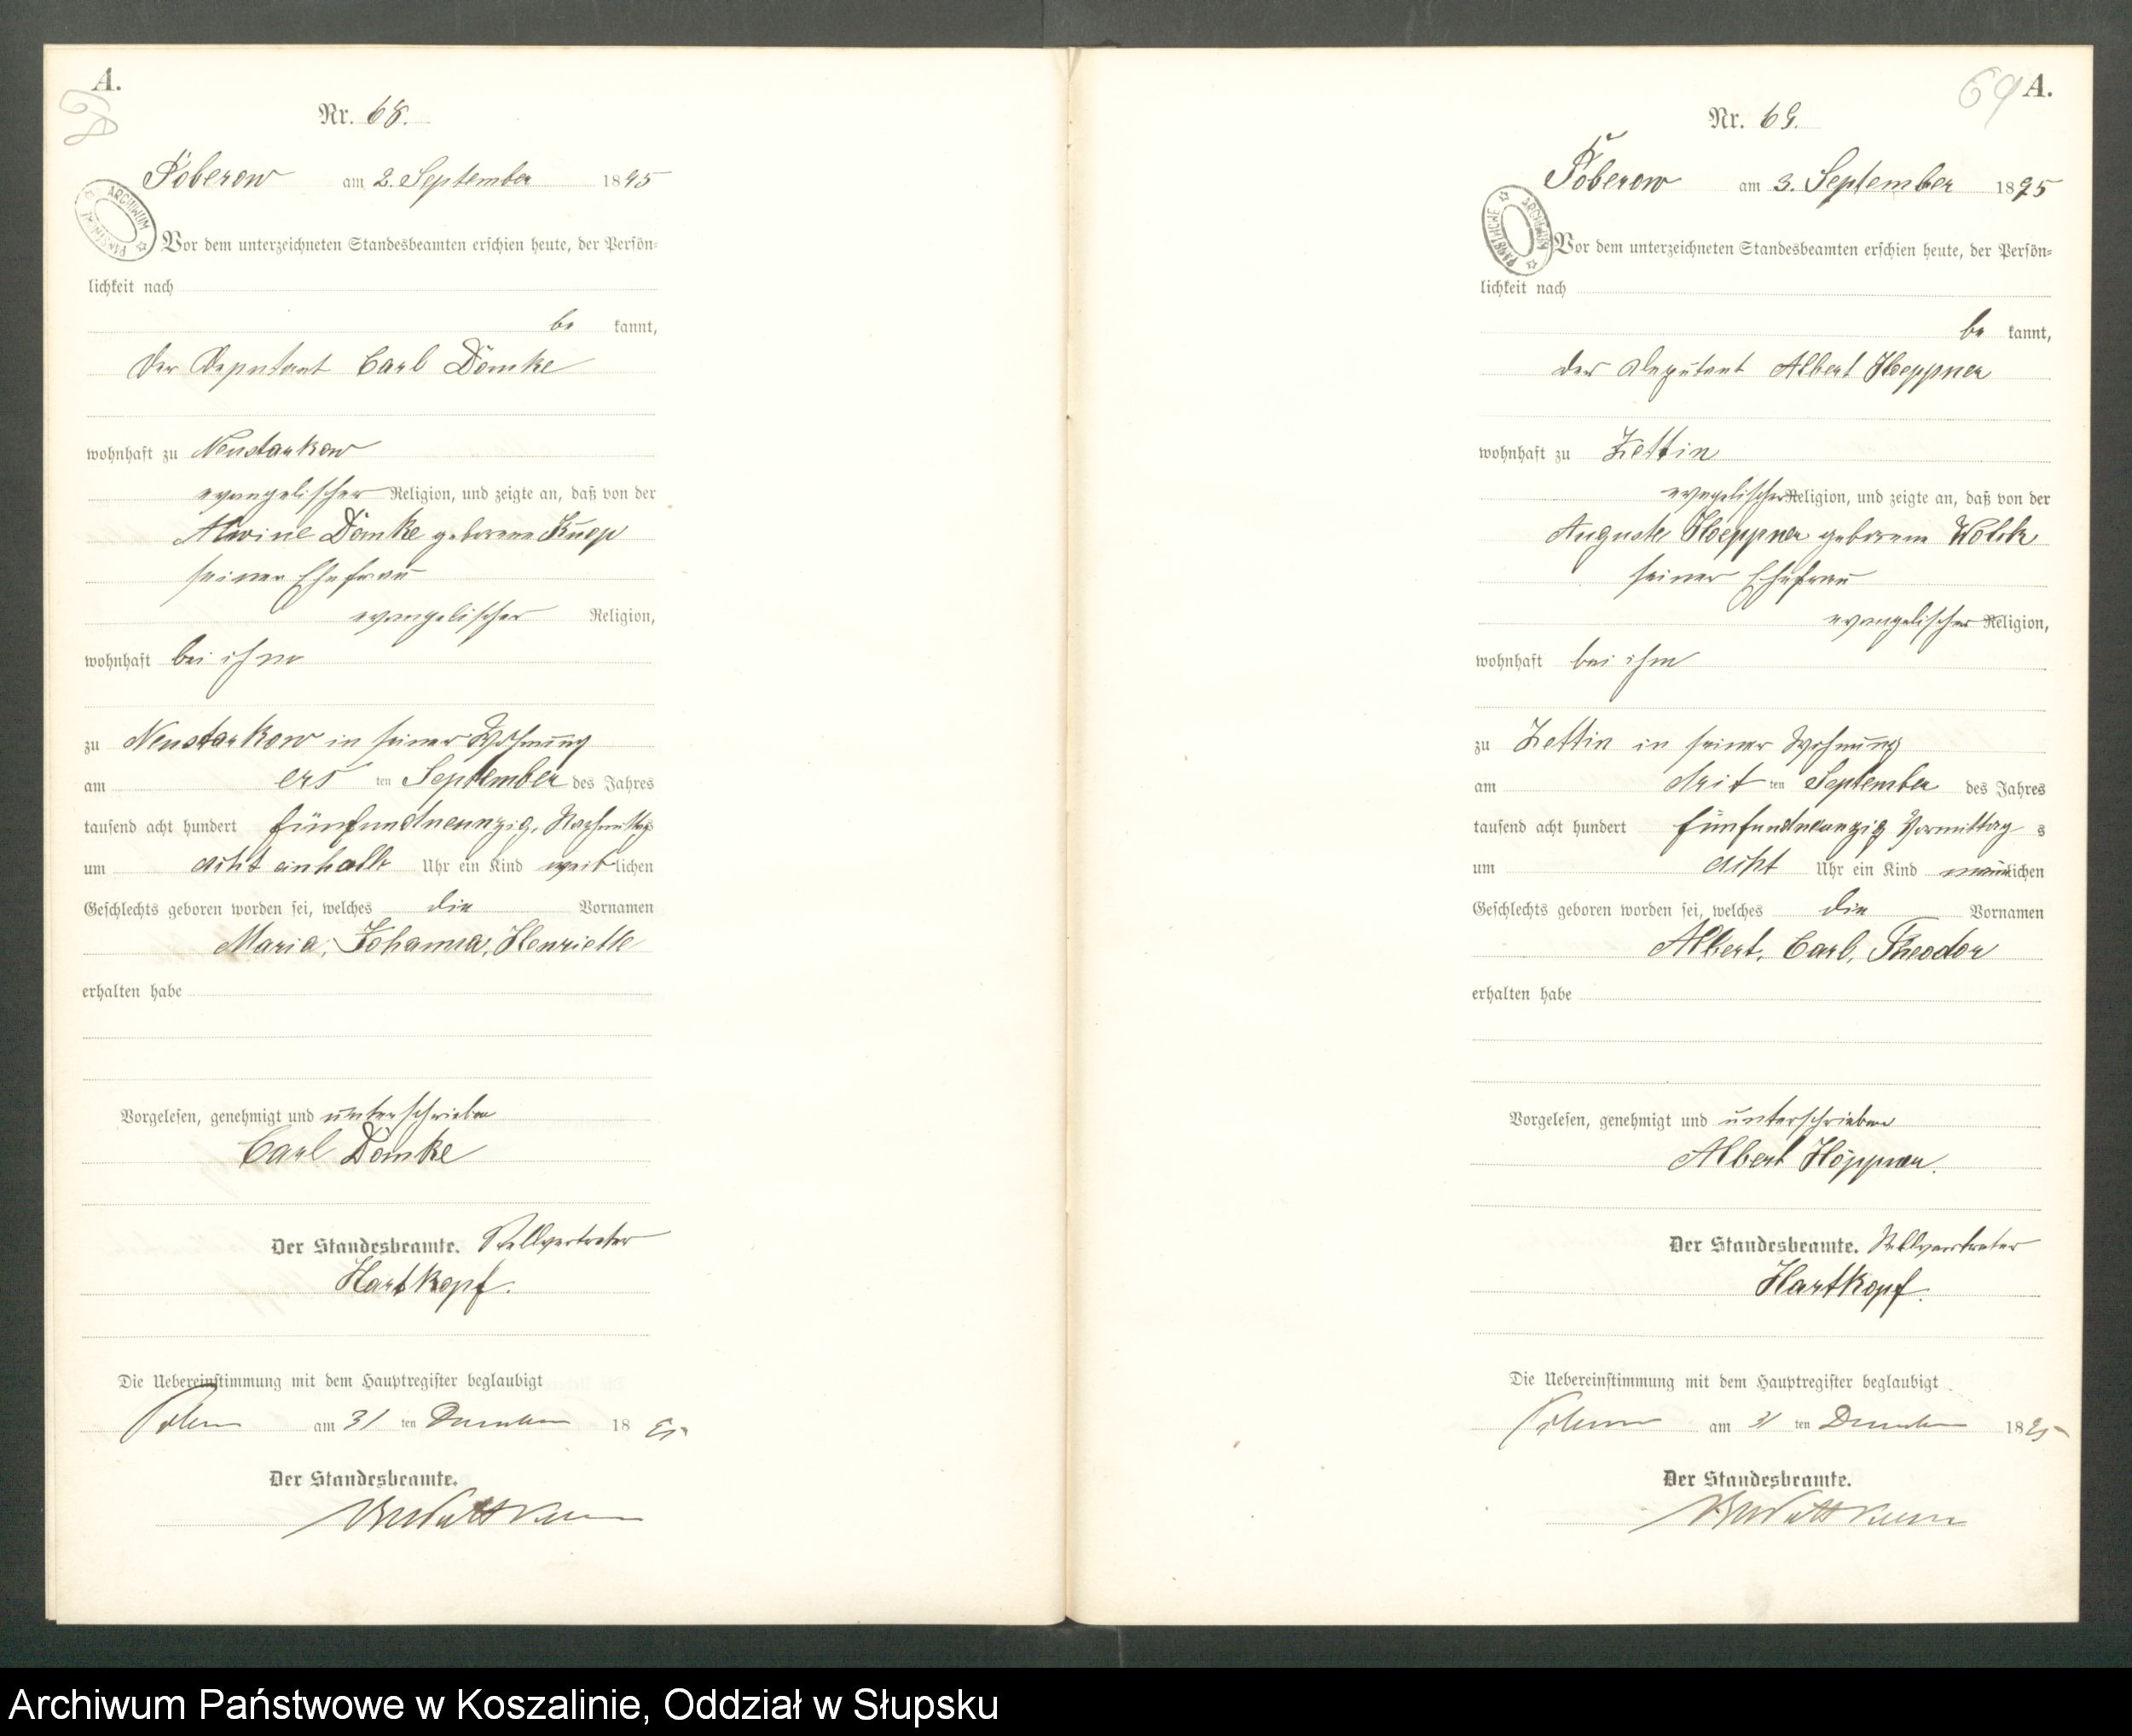 A.
68
Nr. 68.
Poberow am 2. September 1895
ARCHIWUM PAŃSTWOWE
Vor dem unterzeichneten Standesbeamten erschien heute, der Persön-
lichkeit nach
be kannt,
der Deputant Carl Dömke
wohnhaft zu Neustarkow
evangelischer Religion, und zeigte an, daß von der
Alwine Dömke geborene Kuep
seiner Ehefrau
evangelischer Religion,
wohnhaft bei ihm
zu Neustarkow in seiner Wohnung
am ers ten September des Jahres
tausend acht hundert fünfundneunzig, Nachmittags
um acht einhalb Uhr ein Kind weiblichen
Geschlechts geboren worden sei, welches die Vornamen
Maria, Johanna, Henriette
erhalten habe
Vorgelesen, genehmigt und unterschrieben
Carl Dömke
Der Standesbeamte. Stellvertreter
Hartkopf.
Die Uebereinstimmung mit dem Hauptregister beglaubigt
am 31 ten Dezember 1895
Der Standesbeamte.
69 A.
Nr. 69.
Poberow am 3. September 1895
ARCHIWUM PAŃSTWOWE
Vor dem unterzeichneten Standesbeamten erschien heute, der Persön-
lichkeit nach
be kannt,
der Deputant Albert Hoeppner
wohnhaft zu Zettin
evangelischer Religion, und zeigte an, daß von der
Auguste Hoeppner geborene Wolck
seiner Ehefrau
evangelischer Religion,
wohnhaft bei ihm
zu Zettin in seiner Wohnung
am drit ten September des Jahres
tausend acht hundert fünfundneunzig Vormittag s
um acht Uhr ein Kind männlichen
Geschlechts geboren worden sei, welches die Vornamen
Albert, Carl, Theodor
erhalten habe
Vorgelesen, genehmigt und unterschrieben
Albert Höppner.
Der Standesbeamte. Stellvertreter
Hartkopf.
Die Uebereinstimmung mit dem Hauptregister beglaubigt
am 31 ten Dezember 1895
Der Standesbeamte.
Archiwum Państwowe w Koszalinie, Oddział w Słupsku